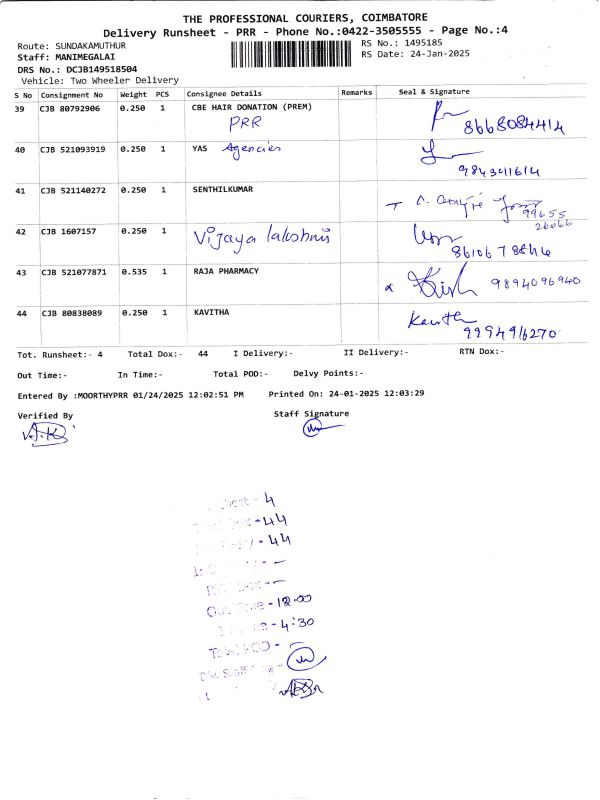 THE PROFESSIONAL COURIERS, COIMBATORE
Delivery Runsheet - PRR - Phone No.:0422-3505555 - Page No.:4
Route: SUNDAKAMUTHUR
RS No.: 1495185
Staff: MANIMEGALAI
RS Date: 24-Jan-2025
DRS No.: DCJB149518504
Vehicle: Two Wheeler Delivery
S No Consignment No Weight PCS Consignee Details Remarks Seal & Signature
39 CJB 80792906 0.250 1 CBE HAIR DONATION (PREM)
PRR 8668084414
40 CJB 521093919 0.250 1 YAS Agencies
9843011614
41 CJB 521140272 0.250 1 SENTHILKUMAR
99655
26066
42 CJB 1607157 0.250 1 Vijaya lakshmi
8610678846
43 CJB 521077871 0.535 1 RAJA PHARMACY
9894096940
44 CJB 80838089 0.250 1 KAVITHA Kavitha
9994916270
Tot. Runsheet:- 4 Total Dox:- 44 I Delivery:- II Delivery:- RTN Dox:-
Out Time:- In Time:- Total POD:- Delvy Points:-
Entered By :MOORTHYPRR 01/24/2025 12:02:51 PM Printed On: 24-01-2025 12:03:29
Verified By Staff Signature
- 4
- 44
- 44
- -
- -
Out Time - 12.00
- 4:30
Total POD -